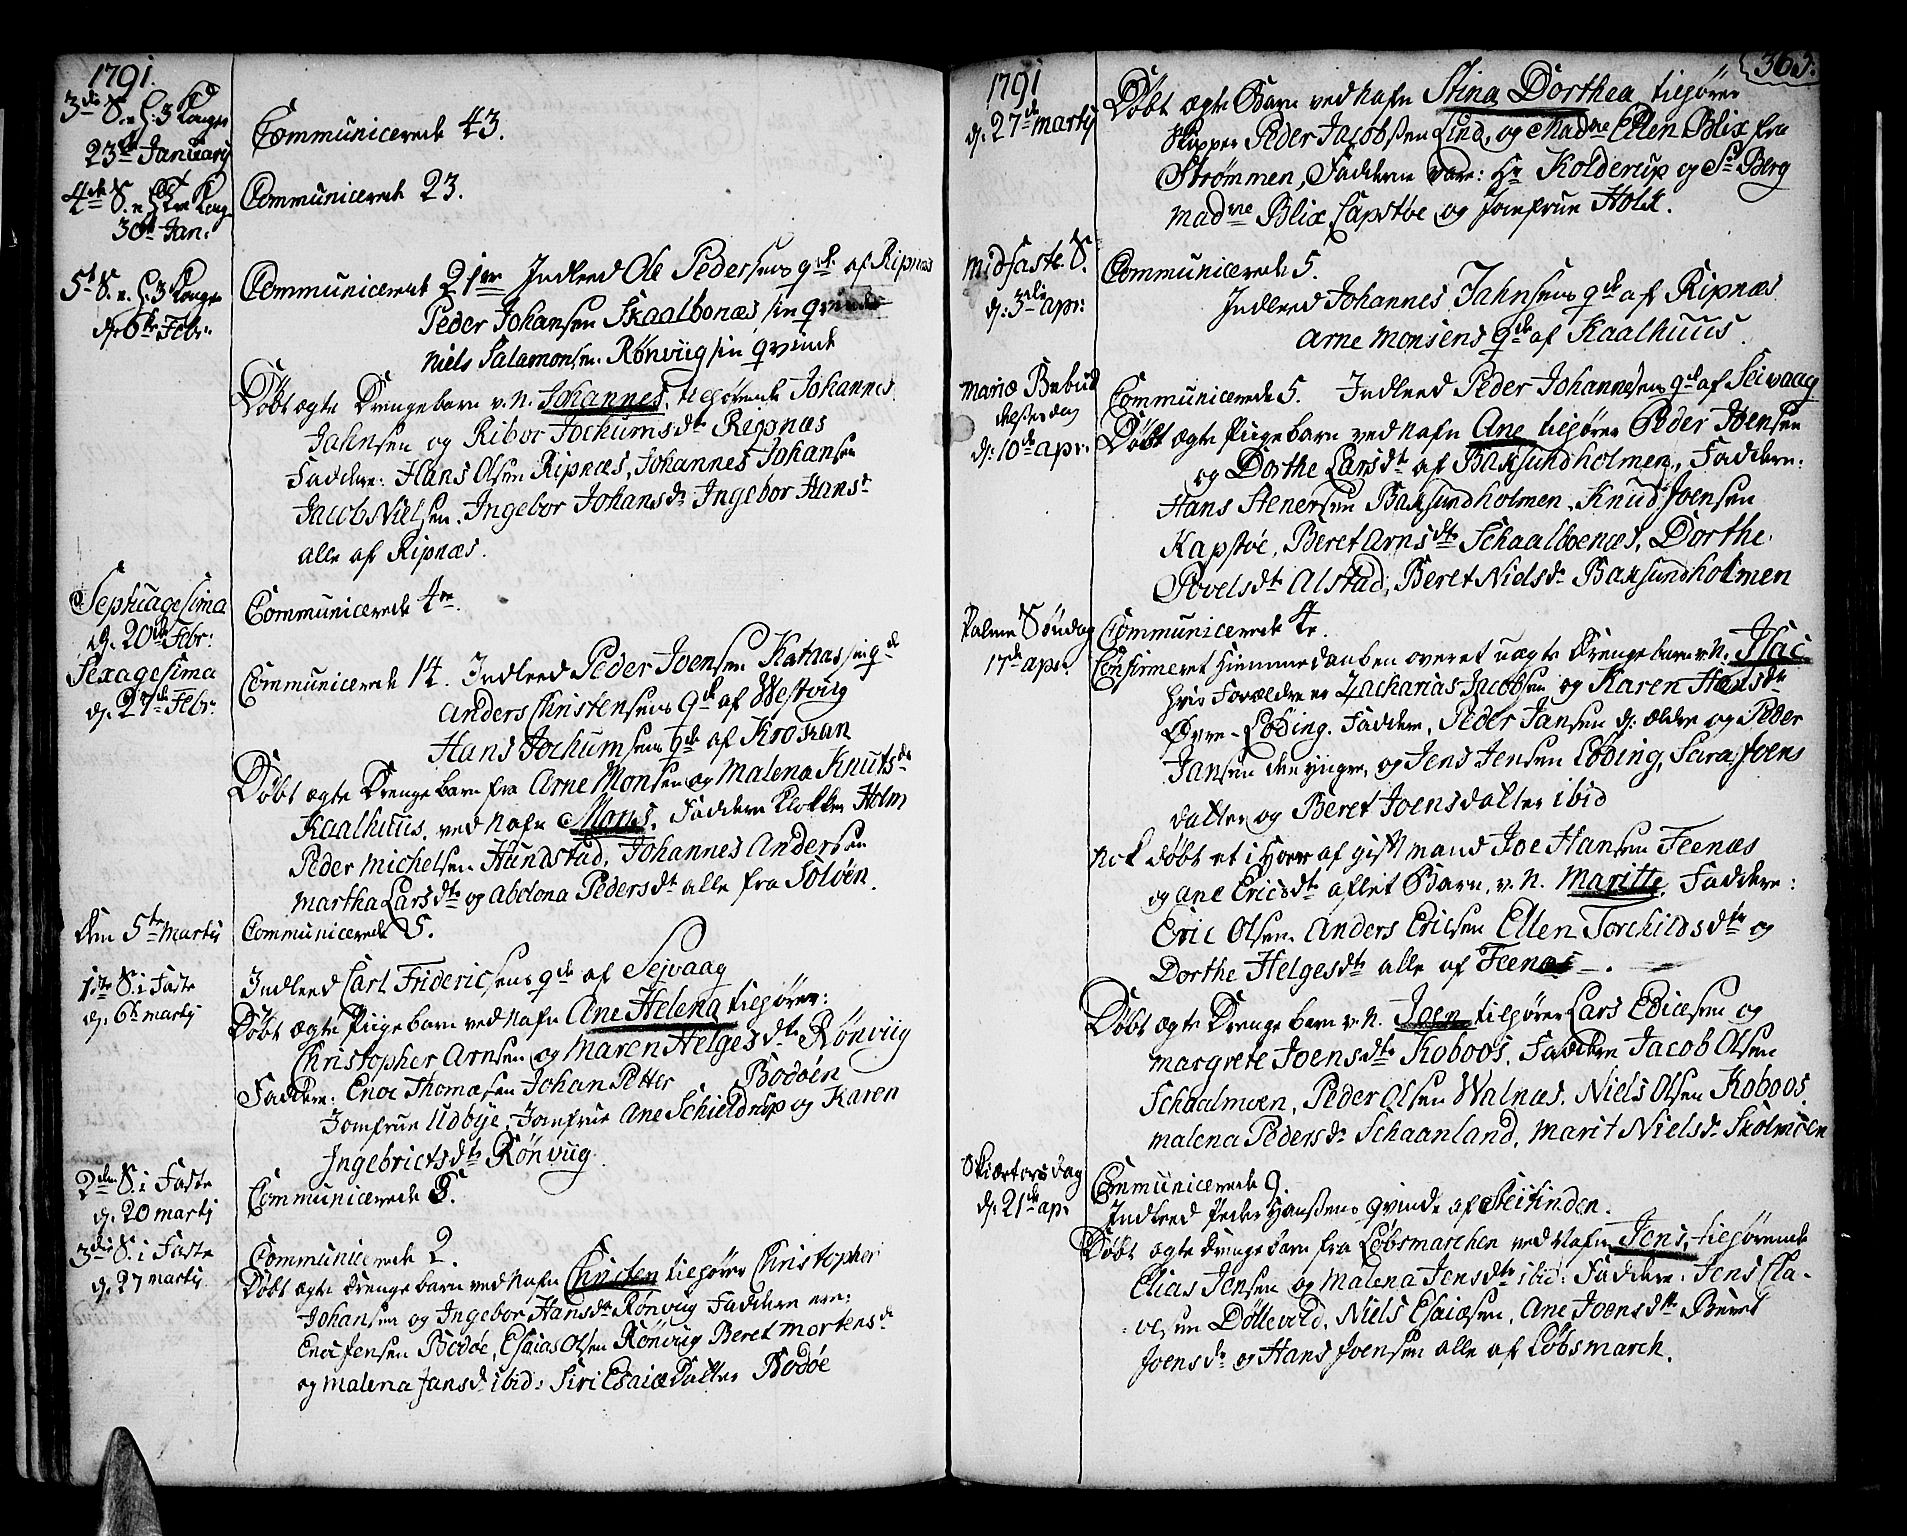 1791.
3de S. e. H: 3 Konger
23de Januarij
Communicerede 43.
4de S. e. H. tre Kong.
30te Jan:
Communicerede 23.
5te S. e. H: 3 Konger
d. 6te Febr:
Communiceret 21ve Indleed Ole Pedersens qde af Ripnæs
Peder Johansen Skaalbonæs sin qvinde
Niels Salamonsen Rønviig sin qvinde
Døbt ægte Drengebarn v. N. Johannes, tilhørende Johannes
Jahnsen og Ribor Jochumsdtr Ripnæs
Faddere: Hans Olsen Ripnæs, Johannes Johansen
Jacob Nielsen. Ingebor Johansdr Ingebor Hansdr
alle af Ripnæs.
Septuagesima
d. 20de Febr:
Communicerede 4re.
Sexagesima
d. 27de Febr.
Communicerede 14. Indleed Peder Joensen sin qde
Anders Christensens qde af Westviig
Hans Jochumsens qde af Krokan
Døbt ægte Drengebarn fra Arne Monsen og Malena Knutsdr
Kaalhuus. ved Nafn Mons. Faddere Klokker Holm
Peder Michelsen Hundstad, Johannes Andersen
Martha Larsdtr og Abelona Pedersdtr alle fra Solvøen.
Den 5te Martij
Communicerede 5.
1ste S. i Faste
d. 6te Martij
Indleed Carl Fridericsens qde af Sejvaag
Døbt ægte Piigebarn ved Nafn Ane Helena tilhører:
Christopher Arnsen og Maren Helgesdtr Rønviig
Faddere: Enoc Thomæsen Johan Petter Bodøen
Jomfrue Udbye, Jomfrue Ane Schieldrup og Karen
Ingebrictsdtr Rønviig.
2den S. i Faste
d. 20 Martij
Communicerede 8.
3die S. i Faste
d. 27 Martij
Communicerede 2.
Døbt ægte Drengebarn ved Nafn Christen tilhører Christopher
Johansen og Ingebor Hansdtr Rønviig Faddere ere:
Enoc Jensen Bodøe, Esaias Olsen Rønviig Beret Mortensdr
og Malena Jansdr ibid: Siri Esaiædatter Bodøe
365.
1791
d. 27de Martij
Døbt ægte Barn ved Nafn Stina Dorthea tilhører
Skipper Peder Jacobsen Lind, og Madme Ellen Blix fra
Strømmen, Fadderne vare: Hr Kolderup og Sr Berg
Madme Blix Capstøe og Jomfrue Holst.
Midfaste S.
d: 3die apr:
Communicerede 5.
Indleed Johannes Jahnsens qde af Ripnæs
Arne Monsens qde af Kaalhuus.
Mariæ Bebudelsesdag
d: 10de apr:
Communicerede 5. Indleed Peder Johannesens qde af Seivaag
Døbt ægte Piigebarn ved Nafn Ane tilhører Peder Joensen
og Dorthe Larsdtr af Baksundholmen, Faddere:
Hans Stenersen Baksundholmen, Knud Joensen
Kapstøe, Beret Arnsdtr Schaalboenæs, Dorthe
Povelsdtr Alstad, Beret Nielsdr Baksundholmen
Palme Søndag
17de apr:
Communicerede 4re.
Confirmeret Hiemmedaaben overet uægte Drengebarn v. N. Isac
hvis Forældre er Zacharias Jacobsen og Karen Hansdtr
Øvre-Løding. Faddere, Peder Jansen d: ældre og Peder
Jansen den yngre, og Jens Jensen Løding, Sara Joens
datter og Beret Joensdatter ibid
Nok døbt et i Hoer af gift Mand Joe Hansen Feenæs
og Ane Ericsdtr aflet Barn, v. N. Maritte. Faddere:
Eric Olsen. Anders Ericsen Ellen Torchildsdtr og
Dorthe Helgesdtr alle af Feenæs.
Døbt ægte Drengebarn v. N. Joen tilhører Lars Ediæsen og
Margrete Joensdtr Koboos. Faddere Jacob Olsen
Schaalmoen, Peder Olsen Walnæs. Niels Olsen Koboos.
Malena Pedersdr Schaanland, Marit Nielsdr Skolmoen
Skiærtorsdag
d: 21de apr
Communicerede 9.
Indleed Peder Hansens qvinde af Skeitinden.
Døbt ægte Drengebarn fra Løbsmarchen ved Nafn Jens, tilhørende
Elias Jensen og Malena Jensdtr ibid: Faddere: Jens Ola-
vesen Døllevold, Niels Esaiæsen, Ane Joensdtr Beret
Joensdr og Hans Joensen alle af Løbsmarch.